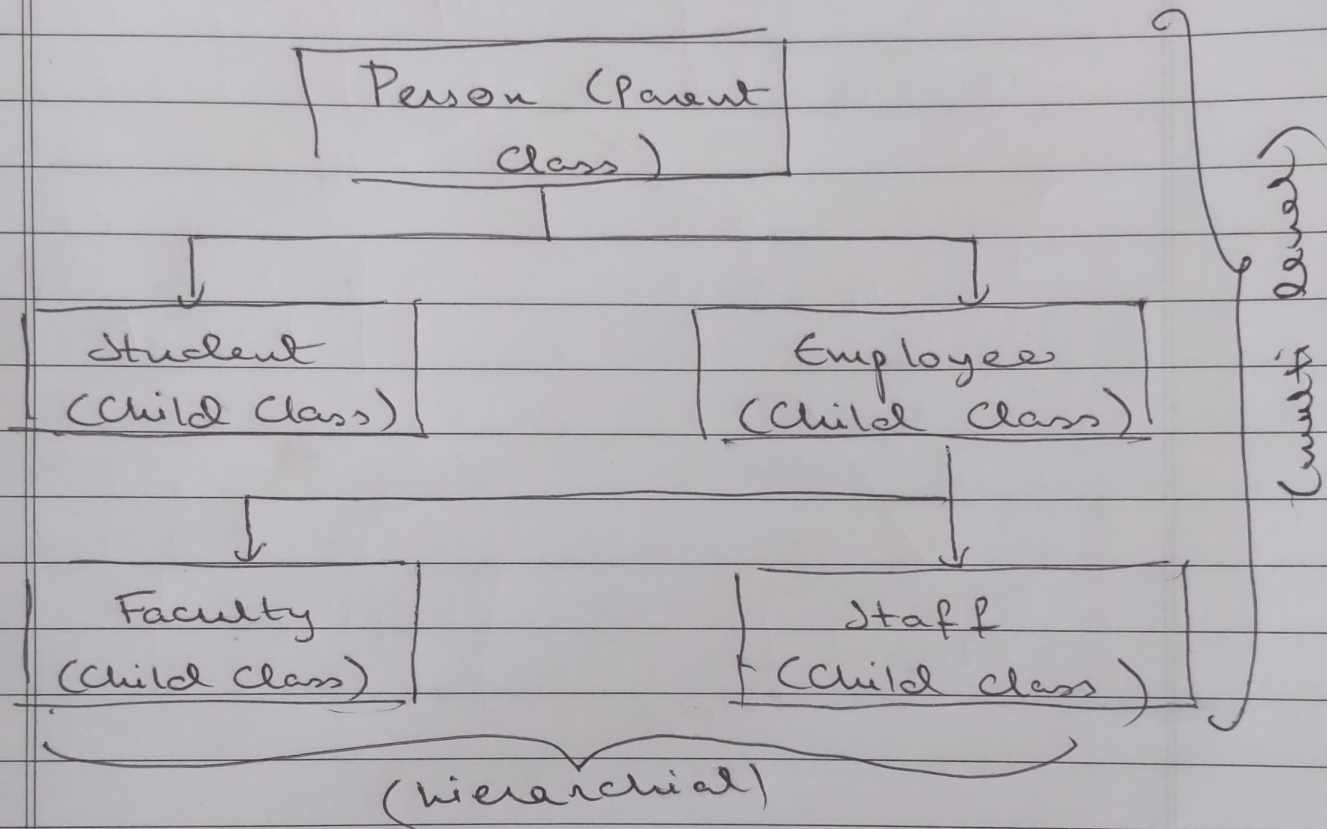 Person (Parent
Class)
Student
(Child Class)
Employee
(Child Class)
Faculty
(Child Class)
Staff
(Child Class)
(hierarchial)
(multi level)